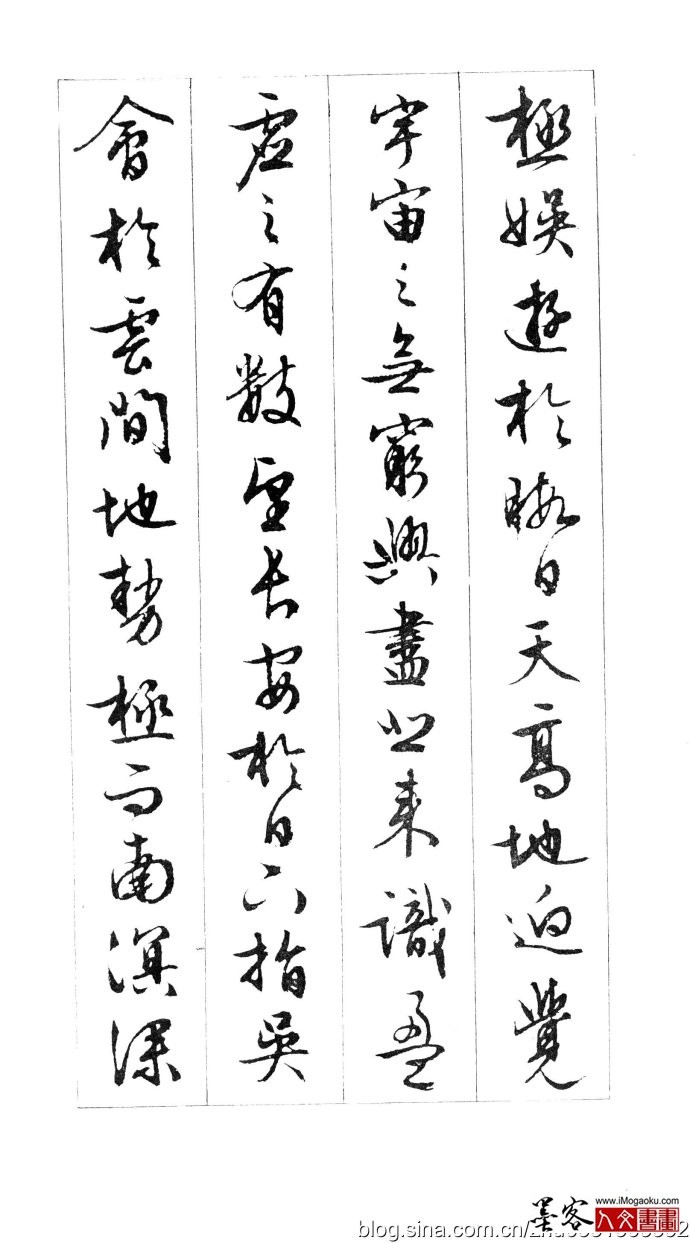 極娛遊於暇日天高地迥覺
宇宙之無窮興盡悲來識盈
虛之有數望長安於日下指吳
會於雲間地勢極而南溟深
www.iMogaoku.com
墨客 人文書畫